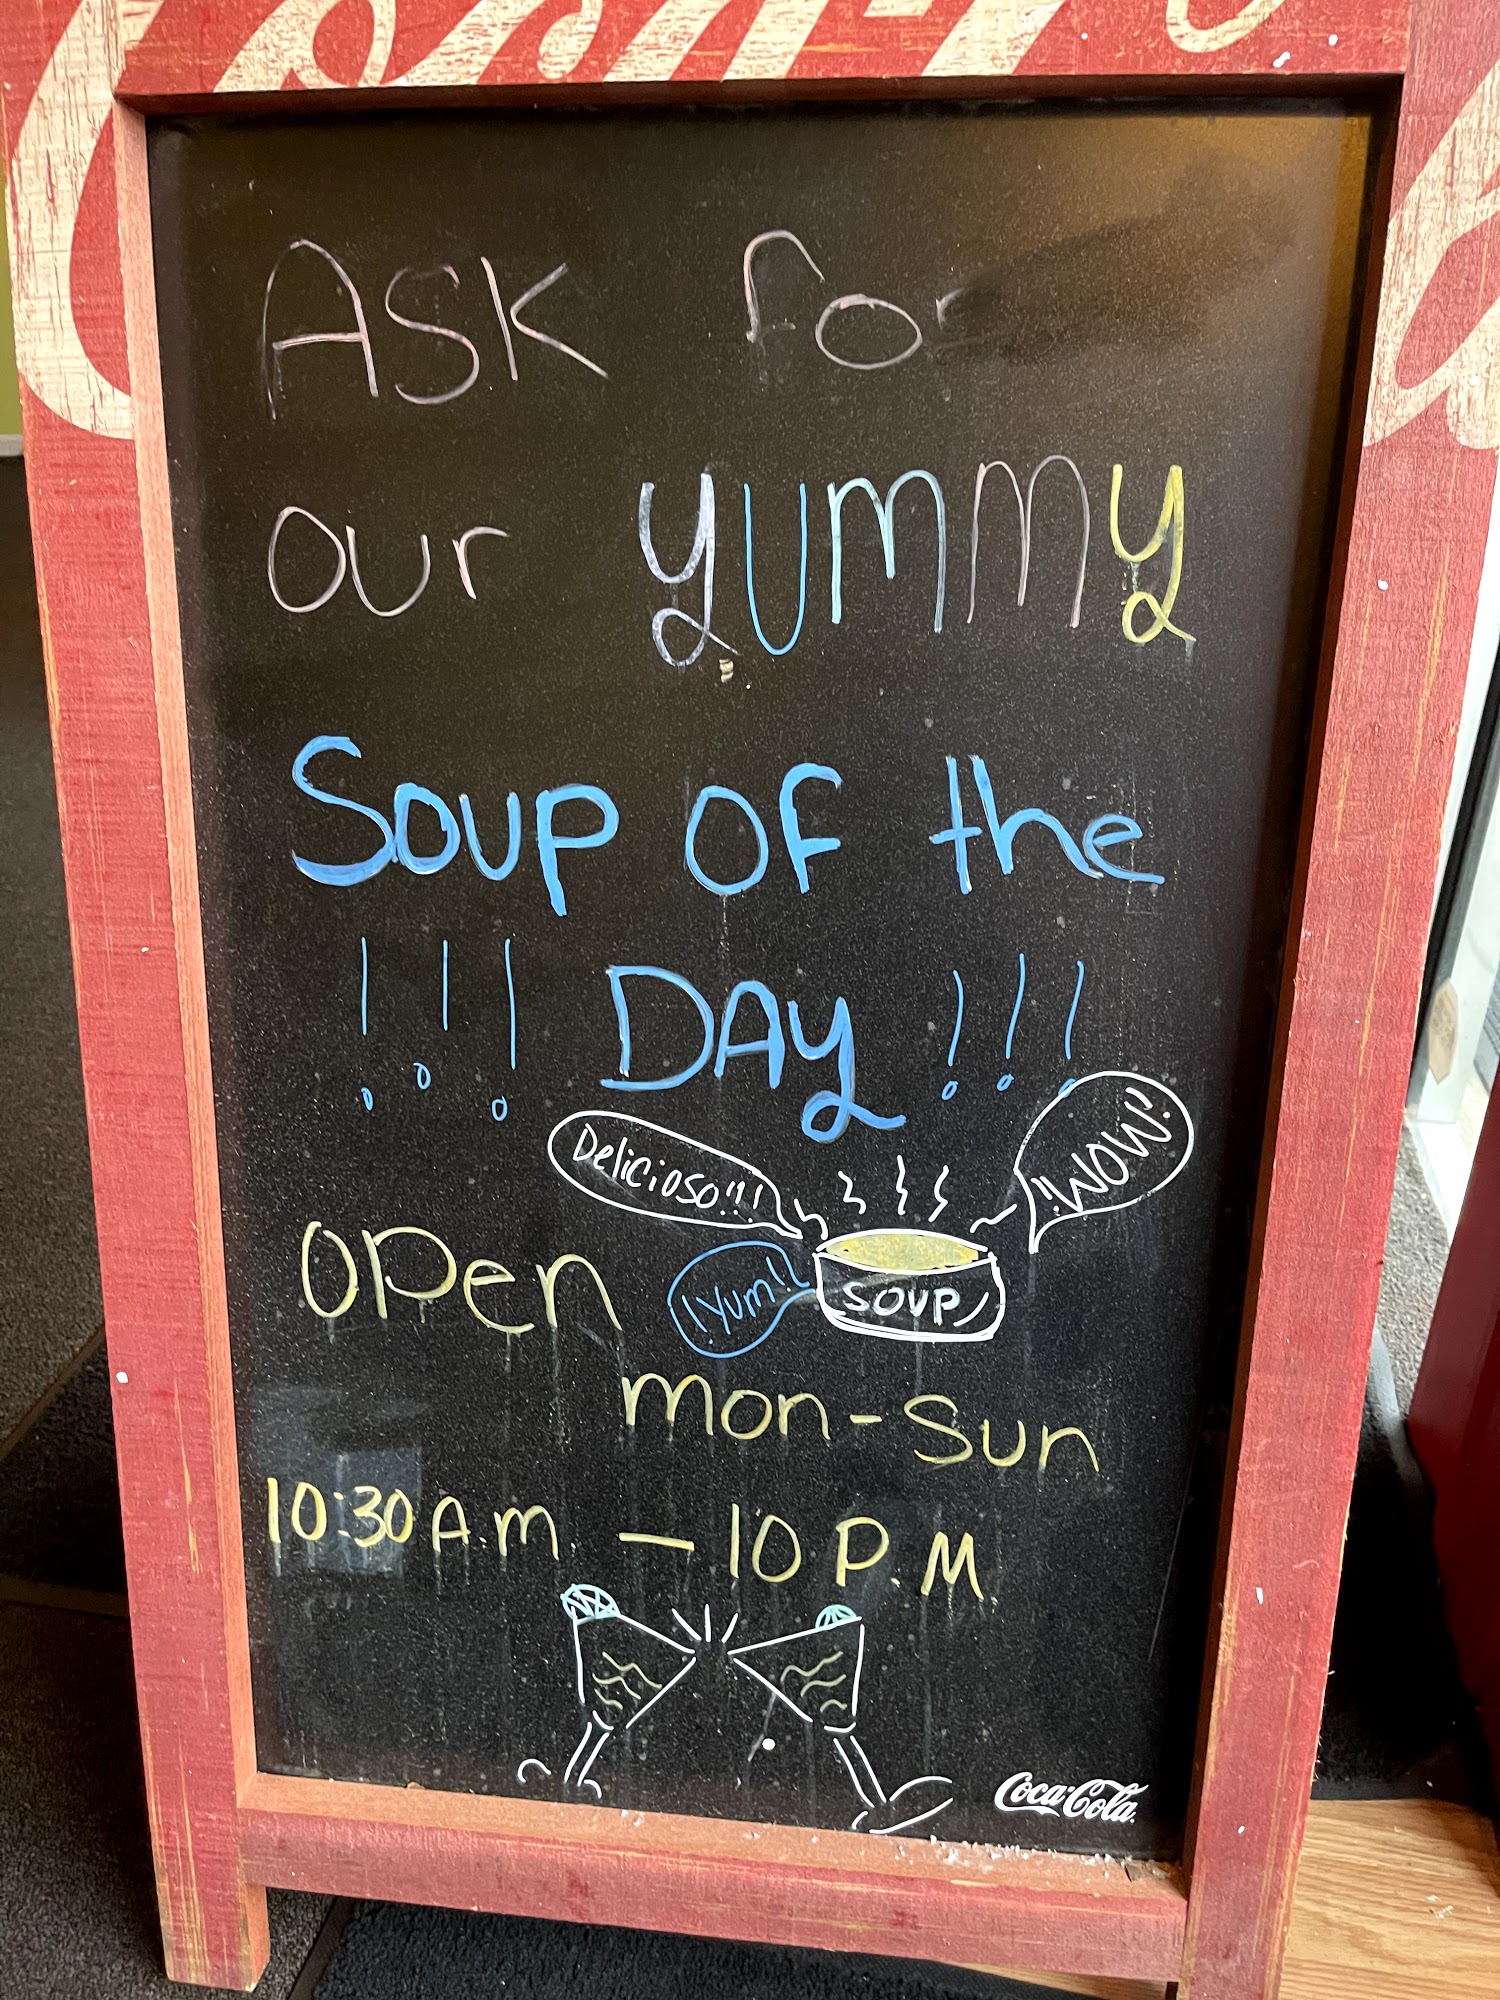 ASK for
our yummy
Soup of the
!!! DAY !!!
Delicioso!!!
!WOW!
open
!Yum!
SOUP
mon-Sun
10:30 A.m - 10 P.M
Coca-Cola